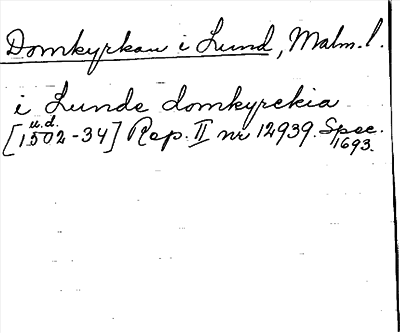 Domkyrkan i Lund, Malm. l.
i Lunde domkyrckia
u.d.
[1502-34] Rep. II nr 12939. Spec.
1693.